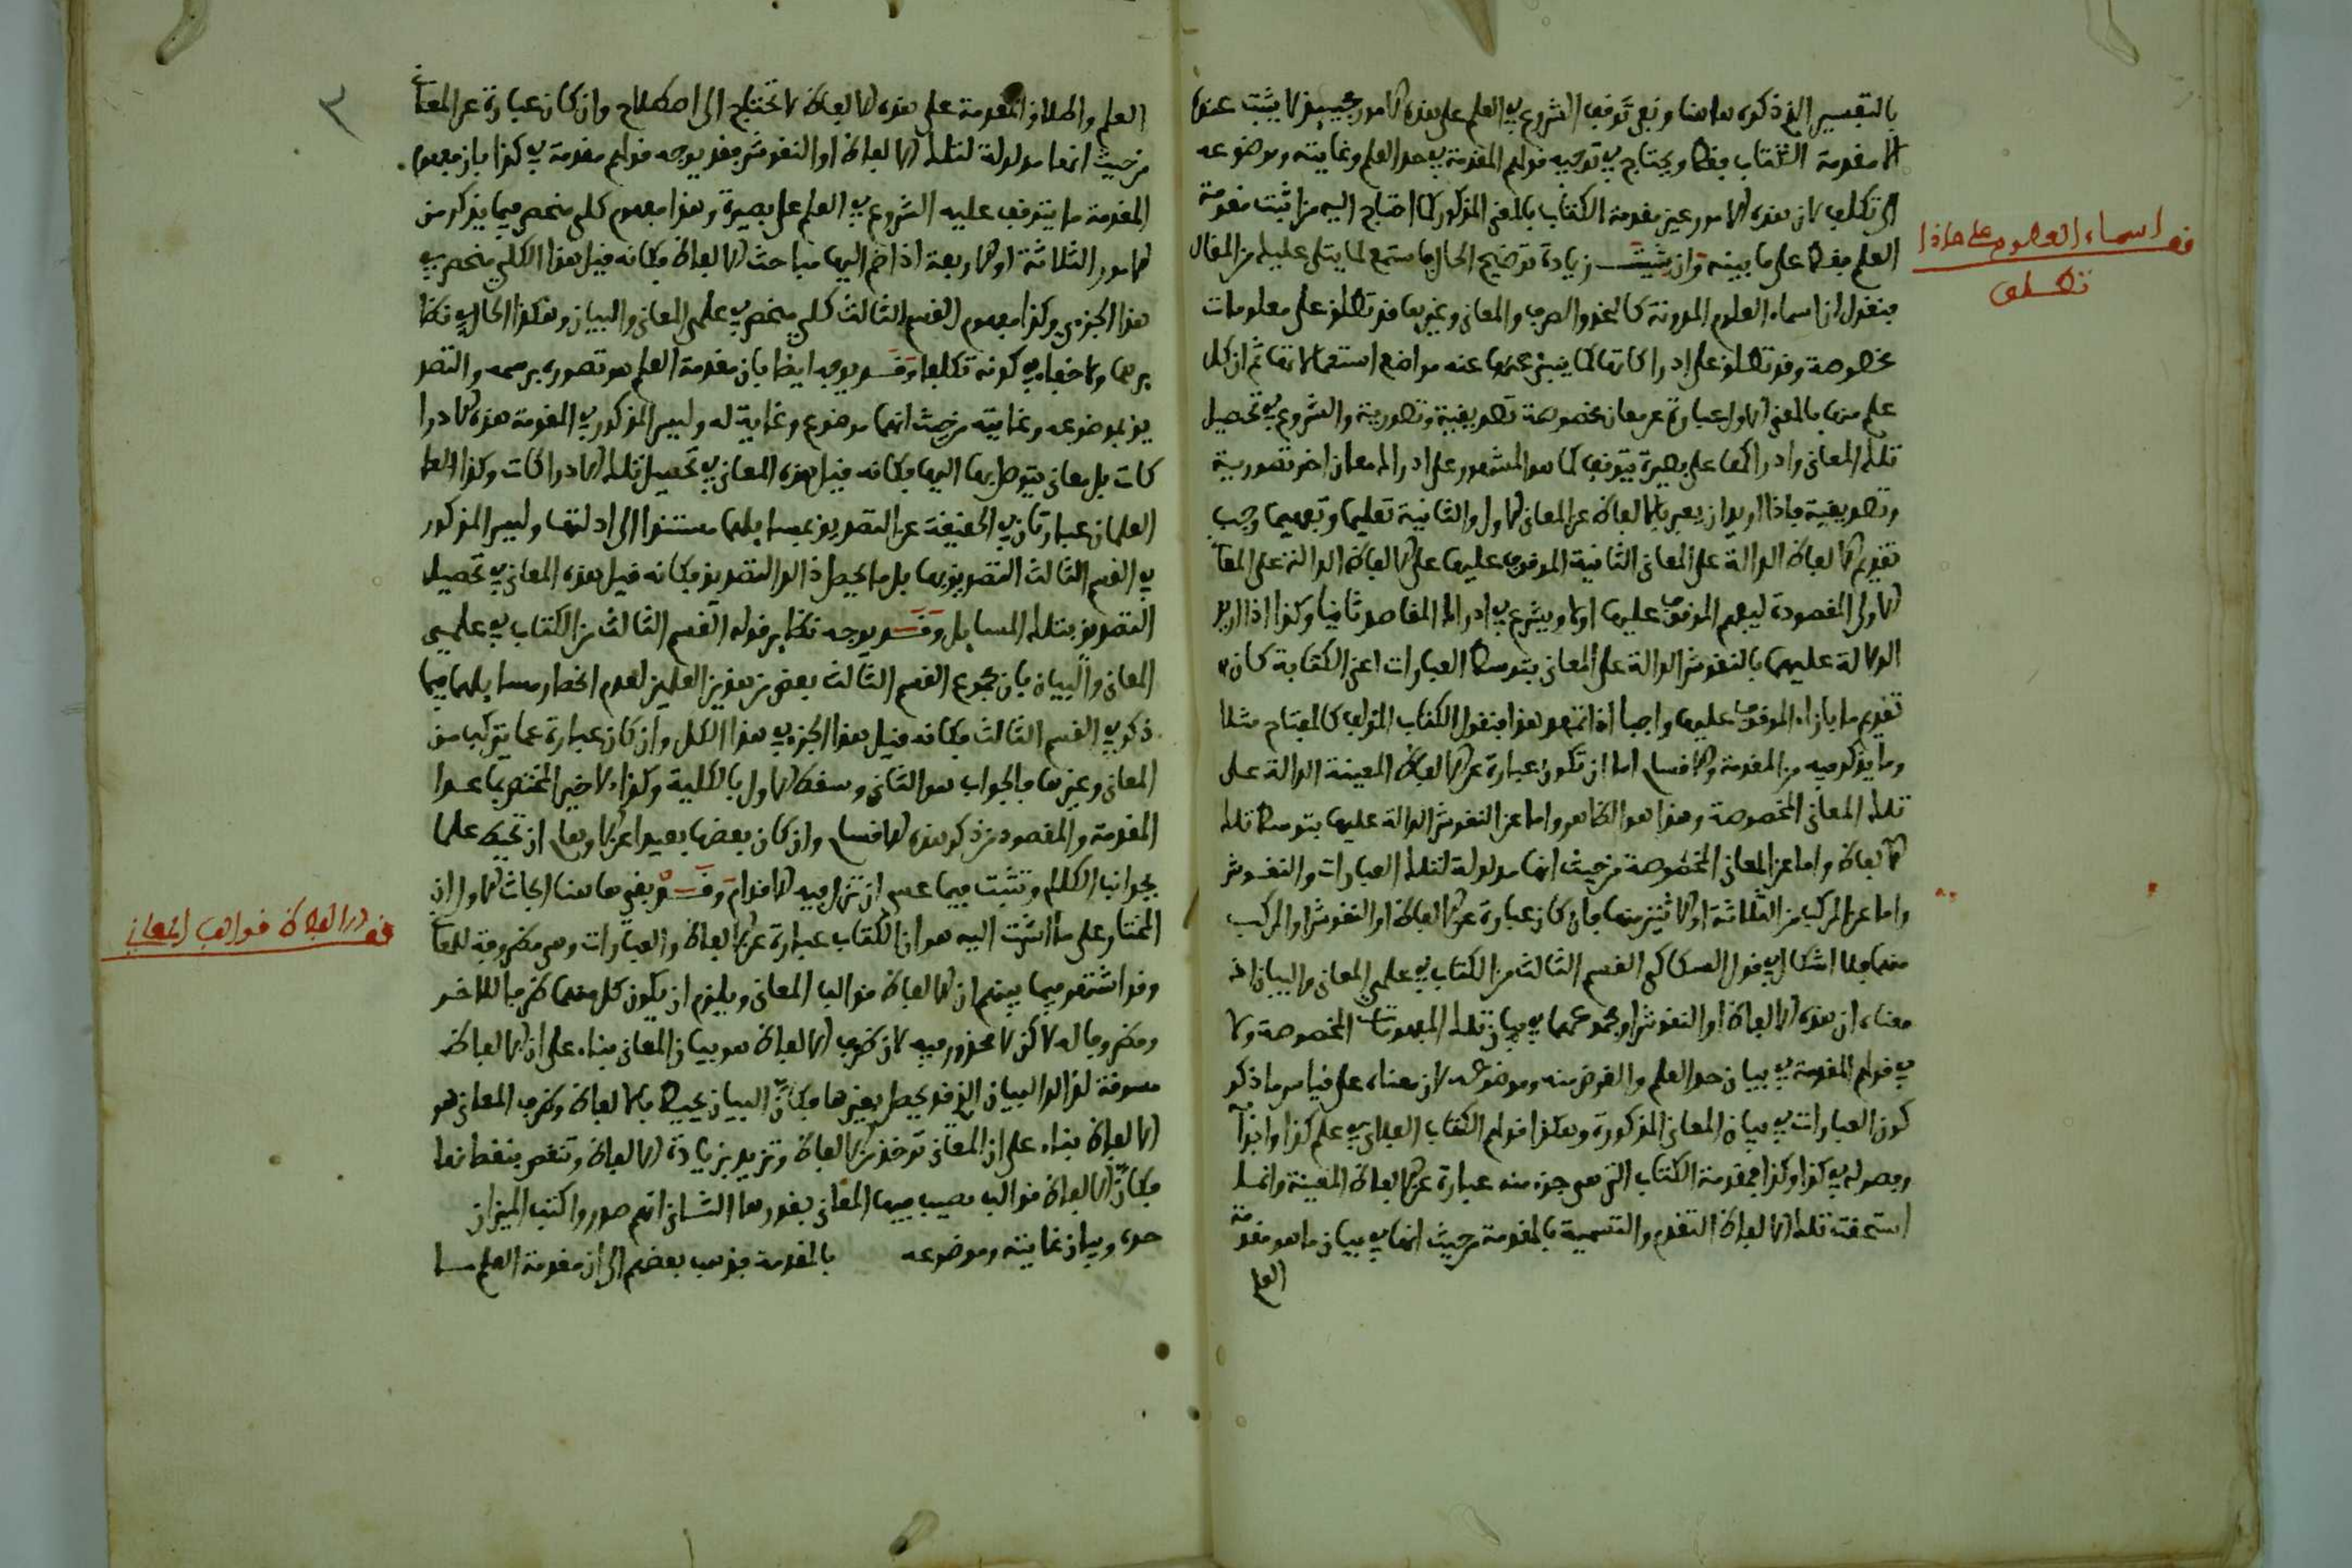 بالتفسير الذي ذكره هاهنا ونفى توقف الشروع في العلم على هذه الامور فحينئذ لا يثبت عنده
الا مقدمة الكتاب فقط ويحتاج في توجيه قولهم المقدمة في حد العلم وغايته وموضوعه
الى تكلف لان هذه الامور عين مقدمة الكتاب بالمعنى المذكور كما احتاج اليه من اثبت مقدمة
العلم فقط على ما بينه وان شئت زيادة توضيح الحال فاستمع لما يتلى عليك من المقال
فنقول ان اسماء العلوم المدونة كالنحو والصرف والمعاني وغيرها قد تطلق على معلومات
مخصوصة وقد تطلق على ادراكاتها كما ينبئ عنه مواضع استعمالاتها ثم ان كل
علم منها بالمعنى الاول عبارة عن معان مخصوصة تصديقية وتصورية والشروع في تحصيل
تلك المعاني وادراكها على بصيرة يتوقف كما هو المشهور على ادراك معان اخر تصورية
وتصديقية فاذا اريد ان يعبر بالالفاظ عن المعاني الاول والثانية تعليما وتفهيما وجب
تقديم الالفاظ الدالة على المعاني الثانية الموقوف عليها على الالفاظ الدالة على المعا
الاولى المقصودة ليفهم الموقوف عليها اولا ويشرع في ادراك المقاصد ثانيا وكذا اذا اريد
الدلالة عليها بالنقوش الدالة على المعاني بتوسط العبارات اعني الكتابة كان
تقديم ما بازاء الموقوف عليها واجبا اذا تمهد هذا فنقول الكتاب المؤلف كالمفتاح مثلا
وما يذكر فيه من المقدمة والاقسام اما ان تكون عبارة عن الالفاظ المعينة الدالة على
تلك المعاني المخصوصة وهذا هو الظاهر واما عن النقوش الدالة عليها بتوسط تلك
الالفاظ واما عن المعاني المخصوصة من حيث انها مدلولة لتلك العبارات والنقوش
واما عن المركب من الثلاثة او الاثنين منها فان كان عبارة عن الالفاظ او النقوش او المركب
منهما فلا اشكال في قول السكاكي القسم الثالث من الكتاب في علمي المعاني والبيان اذ
معناه ان هذه الالفاظ او النقوش او مجموعهما في بيان تلك المفهومات المخصوصة ولا
في قولهم المقدمة في بيان حد العلم والغرض منه وموضوعه لان معناه على قياس ما ذكر
كون العبارات في بيان المعاني المذكورة وهكذا قولهم الكتاب الفلاني في علم كذا وابوا
وفصوله في كذا وكذا فمقدمة الكتاب التي هي جزء منه عبارة عن الالفاظ المعينة وانما
استحقت تلك الالفاظ التقدم والتسمية بالمقدمة من حيث انها في بيان ما هو مقدمة
العلم
قف اسماء العلوم على ماذا
تطلق
٣
العلم واطلاق المقدمة على هذه الالفاظ لا تحتاج الى اصطلاح وان كان عبارة عن المعاني
من حيث انها مدلولة لتلك الالفاظ او النقوش فقد يوجه قولهم مقدمة في كذا بان مفهوم
المقدمة ما يتوقف عليه الشروع في العلم على بصيرة وهذا مفهوم كلي منحصر فيما يذكر من
الامور الثلاثة او الاربعة اذا ضم اليها مباحث الالفاظ فكانه قيل هذا الكلي منحصر في
هذا الجزءي وكذا مفهوم القسم الثالث كلي منحصر في علمي المعاني والبيان وهكذا الحال في نظا
يرهما ولا خفاء في كونه تكلفا وقد يوجه ايضا بان مقدمة العلم هو تصوره برسمه والتصد
يق بموضوعه وغايته من حيث انها موضوع وغاية له وليس المذكور في المقدمة هذه الادرا
كات بل معاني يتوصل بها اليها فكانه قيل هذه المعاني في تحصيل تلك الادراكات وكذا العلـ
العلمان عبارتان في الحقيقة عن التصديق بمسايلهما مستندا الى ادلتها وليس المذكور
في القسم الثالث التصديق بها بل ما يحصل ذلك التصديق فكانه قيل هذه المعاني في تحصيل
التصديق بتلك المسايل وقد يوجه نظاير قوله القسم الثالث من الكتاب في علمي
المعاني والبيان بان مجموع القسم الثالث بعض من هذين العلمين لعدم انحصار مسايلهما فيما
ذكر في القسم الثالث فكانه قيل هذا الجزء في هذا الكل وان كان عبارة عما يتركب من
المعاني وغيرها فالجواب هو الثاني وسقط الاول بالكلية وكذا الاخير المختص بما عدا
المقدمة والمقصود من ذكر هذه الاقسام وان كان بعضها بعيدا عن الاوهام ان تحيط علما
بجوانب الكلام وتثبت فيما عسى ان تزل فيه الاقدام وقد بقي هاهنا ابحاث الاول ان
المختار على ما اشرت اليه هو ان الكتاب عبارة عن الالفاظ والعبارات وهي مظروفة للمعا
وقد اشتهر فيما بينهم ان الالفاظ قوالب المعاني ويلزم ان يكون كل منهما ظرفا للاخر
ومظروفا له لاكن لا محذور فيه لان ظرف الالفاظ هو بيان المعاني بناء على ان الالفاظ
مسوقة لذلك البيان الذي قد يحصل بغيرها فكان البيان محيط بالالفاظ وظرف المعاني هو
الالفاظ بناء على ان المعاني توخذ من الالفاظ وتزيد بزيادة الالفاظ وتنقص بنقصانها
فكان الالفاظ قوالب يصب فيها المعاني بقدرها الثاني انهم صدروا كتب الميزان
بالمقدمة فذهب بعضهم الى ان مقدمة العلم ما حده وبيان غايته وموضوعه
قف الالفاظ قوالب المعاني